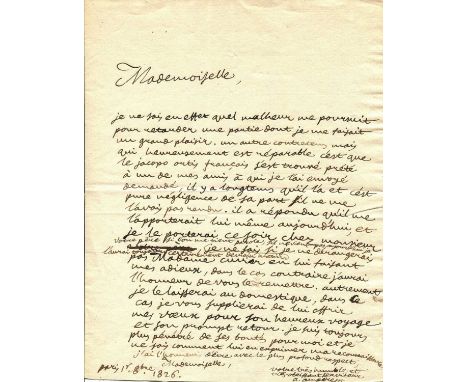 Mademoiselle,
je ne sais en effet quel malheur me poursuit
pour retarder une partie dont je me faisait
un grand plaisir. un autre contretems mais
qui heureusement est réparable c'est que
le jacopo ortis français s'est trouvé prêté
à un de mes amis à qui je l'ai envoyé
demandé, il y a longtems qu'il l'a et c'est
pure négligence de sa part s'il ne me
l'avais pas rendu. il a répondu qu'il me
l'apporterait lui même aujourd'hui et
je le porterai ce soir chez monsieur
votre père si
l'aurai certainement demain matin
je ne sais si je ne dérangerai
pas Madame en lui faisant
mes adieux, dans le cas contraire j'aurai
l'honneur de vous le remettre, autrement
je le laisserai au domestique, dans ce
cas je vous supplierai de lui offrir
mes vœux pour son heureux voyage
et son prompt retour. je suis toujours
plus pénétré de ses bontés pour moi et je
ne sais comment lui en exprimer ma reconnaissance
J'ai l'honneur d'être avec le plus profond respect
Mademoiselle,
votre très humble et
très obéissant serviteur
paris 1er 8bre
1826.